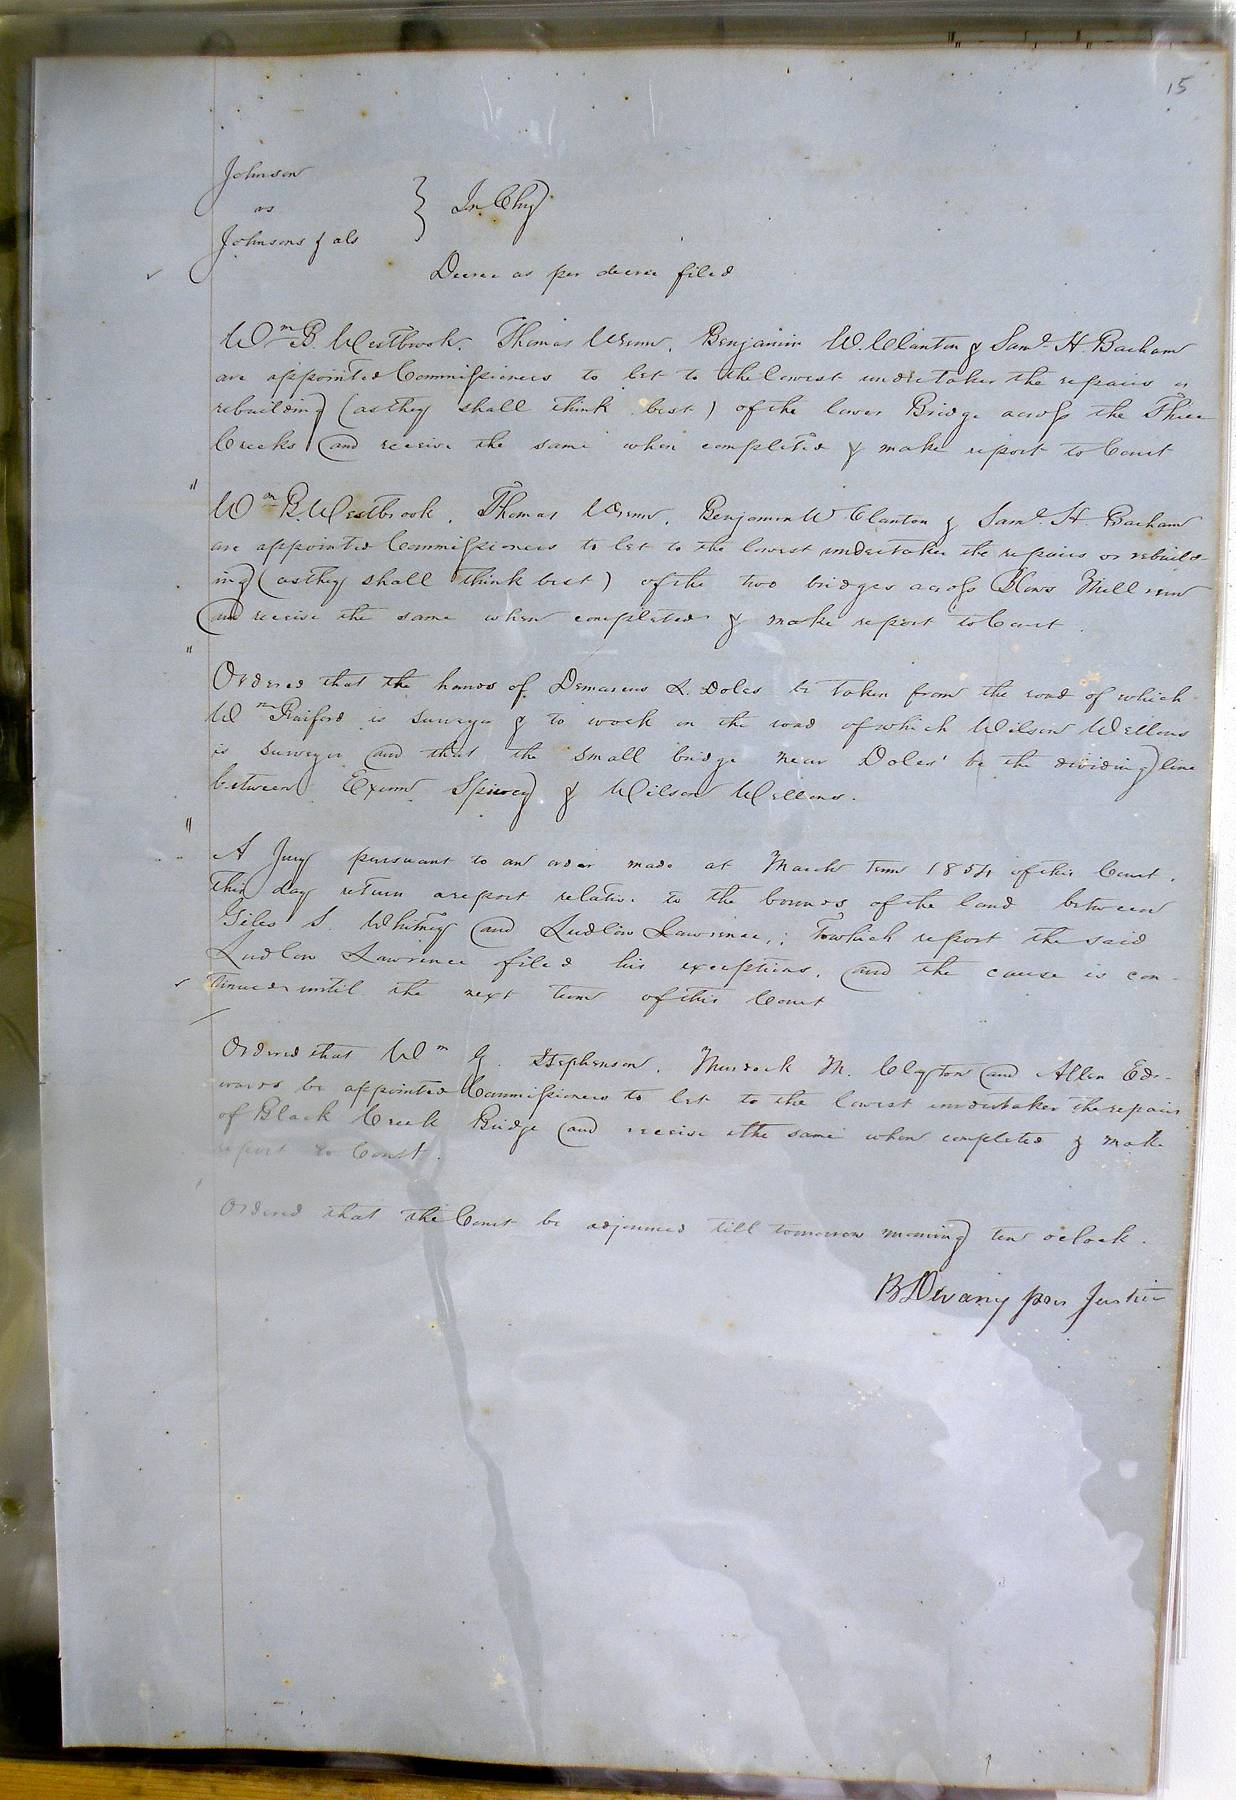 15
Johnson
vs
Johnsons & als
} In Chy
Decree as per decree filed
Wm B. Westbrook. Thomas Urem, Benjamin W. Clanton & Saml H. Barham
are appointed Commissioners to let to the lowest undertaker the repairs or
rebuilding (as they shall think best) of the lower Bridge across the Three
Creeks and receive the same when completed & make report to Court
"
Wm B. Westbrook, Thomas Urem, Benjamin W Clanton & Saml H Barham
are appointed Commissioners to let to the lowest undertaker the repairs or rebuild-
ing (as they shall think best) of the two bridges across Blows Mill run
and receive the same when completed & make report to Court.
"
Ordered that the hands of Demarcus L. Doles be taken from the road of which
Wm Raiford is Surveyor & to work on the road of which Wilson Wellons
is Surveyor and that the small bridge near Doles' be the dividing line
between Exum Spivey & Wilson Wellons.
"
A Jury pursuant to an order made at March term 1854 of this Court,
this day return a report relative to the bounds of the land between
Giles S. Whitney and Ludlow Lawrence, ; to which report the said
Ludlow Lawrence filed his exceptions, and the cause is con-
tinued until the next term of this Court
Ordered that Wm G. Stephenson, Murdock M. Clayton and Allen Ed-
wards be appointed Commissioners to let to the lowest undertaker the repairs
of Black Creek Bridge and receive the same when completed & make
report to Court.
Ordered that the Court be adjourned till tomorrow morning ten oclock.
B Devany pres Justice